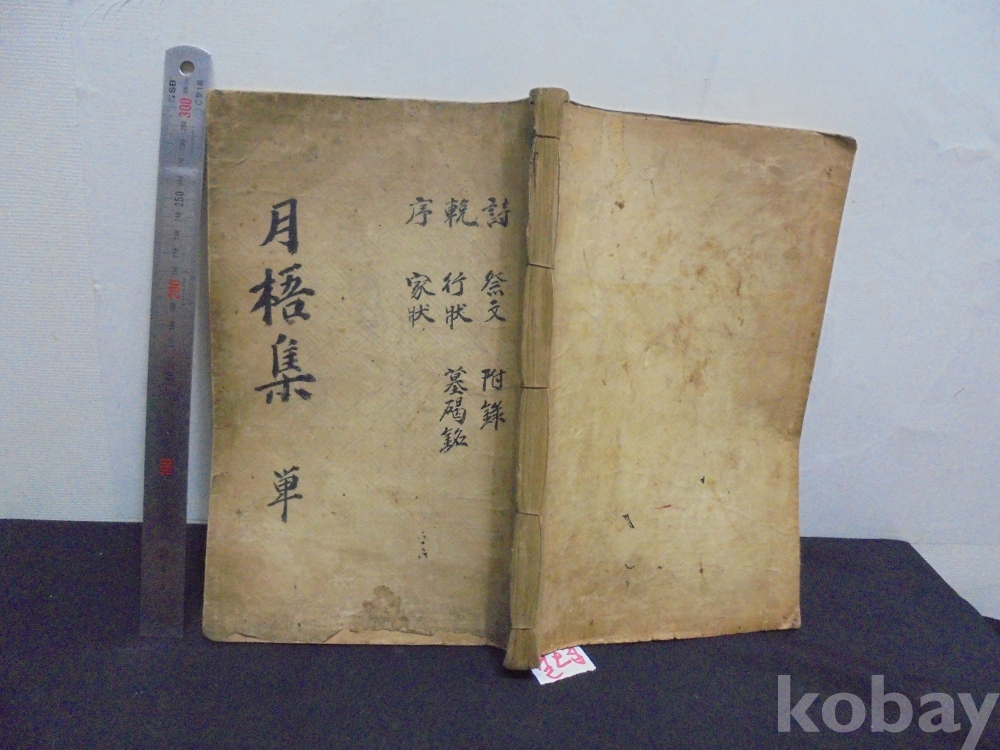 月梧集 単
詩 祭文 附錄
輓 行狀 墓碣銘
序 家狀
300
250
200
100
kobay